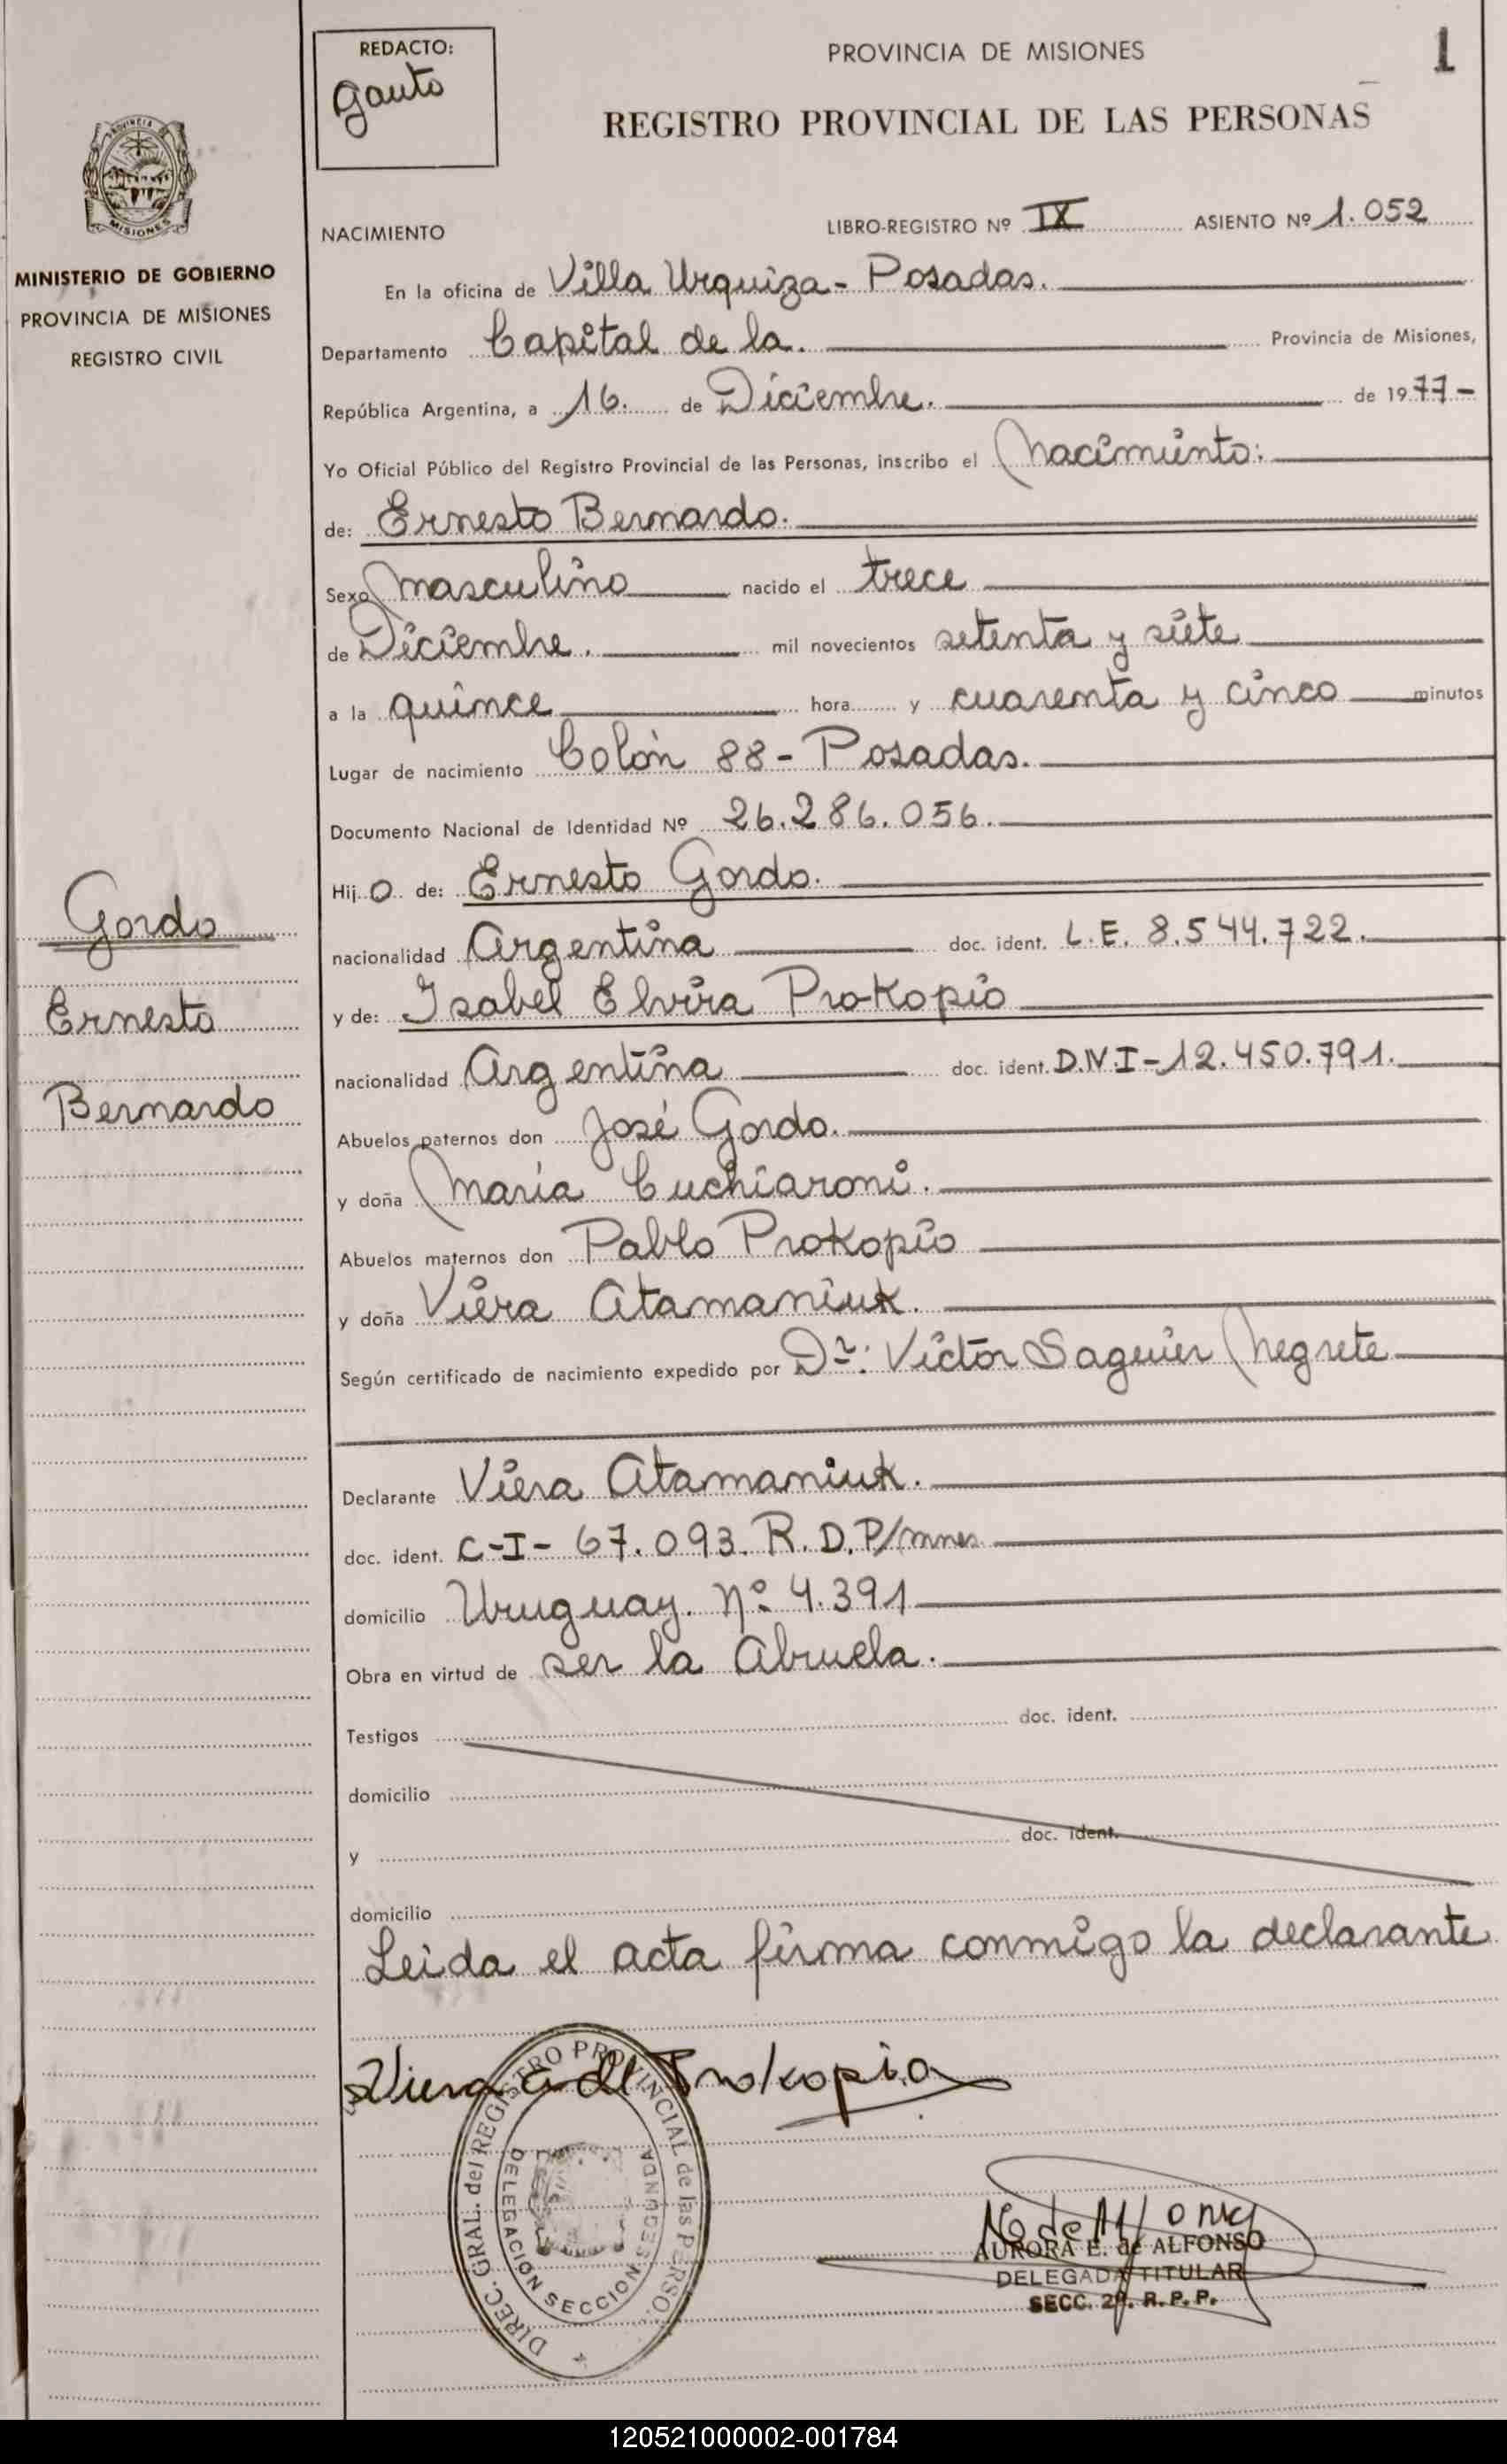 REDACTO:
Gauto
PROVINCIA DE MISIONES
1
REGISTRO PROVINCIAL DE LAS PERSONAS
PROVINCIA DE
MISIONES
MINISTERIO DE GOBIERNO
PROVINCIA DE MISIONES
REGISTRO CIVIL
NACIMIENTO
LIBRO-REGISTRO Nº IX ASIENTO Nº 1.052
En la oficina de Villa Urquiza - Posadas.
Departamento Capital de la. Provincia de Misiones,
República Argentina, a 16. de Diciembre. de 1977-
Yo Oficial Público del Registro Provincial de las Personas, inscribo el Nacimiento:
de: Ernesto Bernardo.
Sexo Masculino nacido el trece
de Diciembre. mil novecientos setenta y siete
a la quince hora y cuarenta y cinco minutos
Lugar de nacimiento Colón 88 - Posadas.
Documento Nacional de Identidad Nº 26.286.056.
Hij o de: Ernesto Gordo.
nacionalidad Argentina doc. ident. L.E. 8.544.722.
y de: Isabel Elvira Prokopio
nacionalidad Argentina doc. ident. D.N.I - 12.450.791.
Abuelos paternos don José Gordo.
y doña María Cuchiaroni.
Abuelos maternos don Pablo Prokopio
y doña Viera Atamaniuk.
Según certificado de nacimiento expedido por Dr: Victor Saguier Negrete
Gordo
Ernesto
Bernardo
Declarante Viera Atamaniuk.
doc. ident. C-I- 67.093. R.D.P/mnes.
domicilio Uruguay. Nº 4.391
Obra en virtud de ser la Abuela.
Testigos doc. ident.
domicilio
y doc. ident.
domicilio
Leida el acta firma conmigo la declarante
Viera A de Prokopio
DIREC. GRAL. del REGISTRO PROVINCIAL de las PERSO.
DELEGACIÓN SECCION SEGUNDA
AURORA E. de ALFONSO
DELEGADA TITULAR
SECC. 2ª. R. P. P.
120521000002-001784